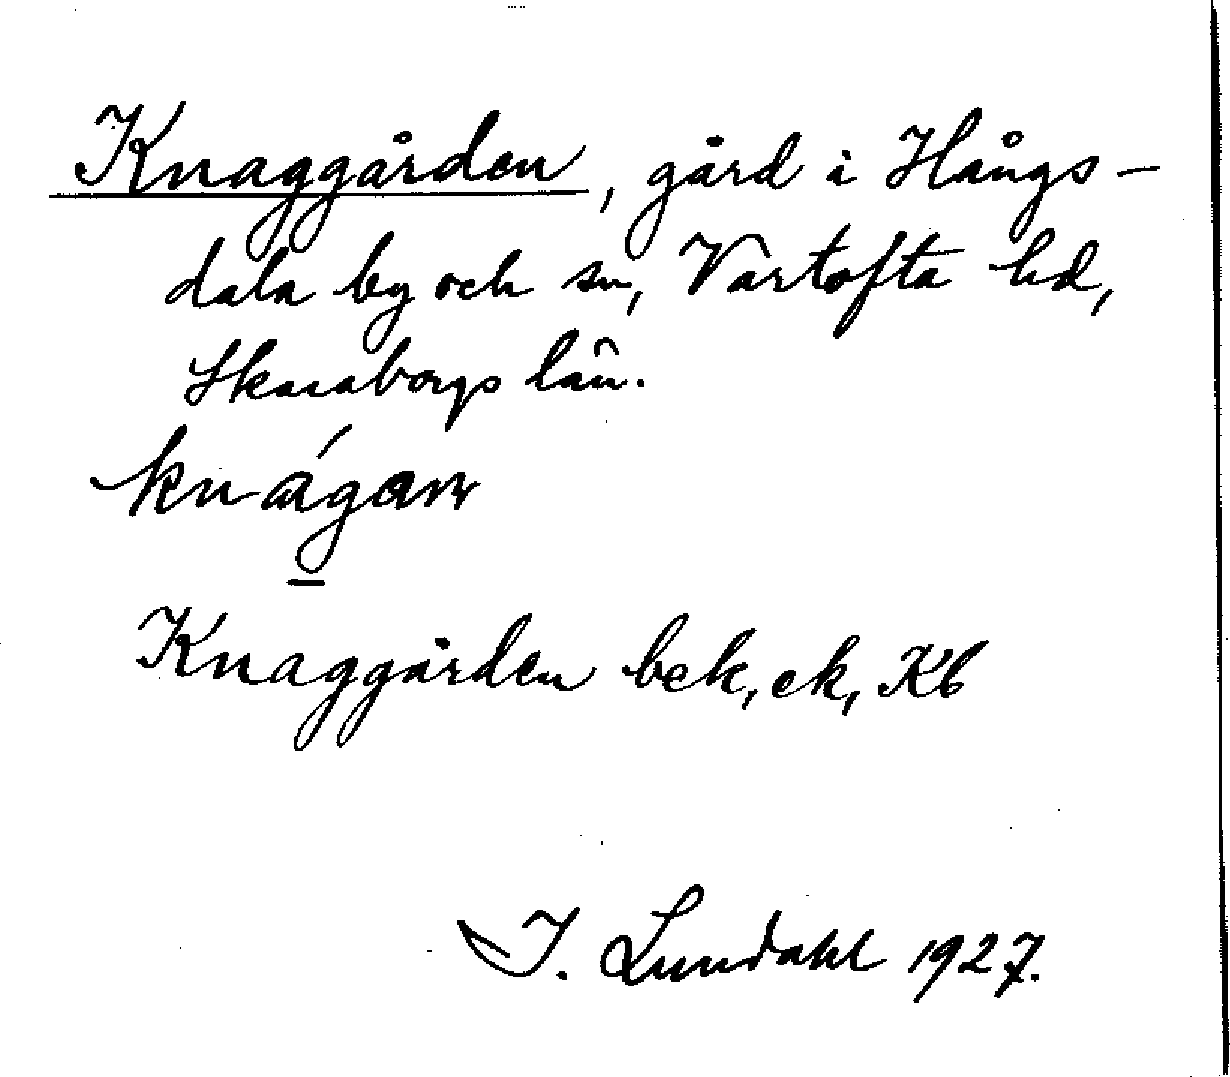 Knaggården, gård i Hångs-
dala by och sn, Vartofta hd,
Skaraborgs län.
Knaggården bek, ek, Kb
I. Lundahl 1927.